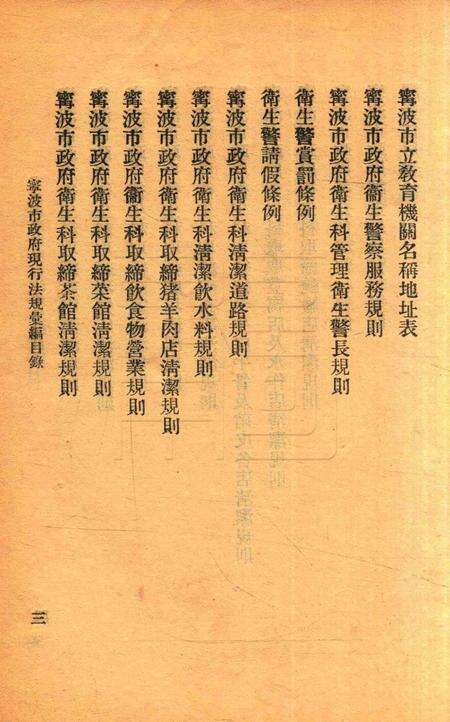 寗波市立敎育機關名稱地址表
寗波市政府衞生警察服務規則
寗波市政府衞生科管理衞生警長規則
衞生警賞罰條例
衞生警請假條例
寗波市政府衞生科淸潔道路規則
寗波市政府衞生科淸潔飮水料規則
寗波市政府衞生科取締猪羊肉店淸潔規則
寗波市政府衞生科取締飮食物營業規則
寗波市政府衞生科取締菜館淸潔規則
寗波市政府衞生科取締茶館淸潔規則
寗波市政府現行法規彙編目錄
三